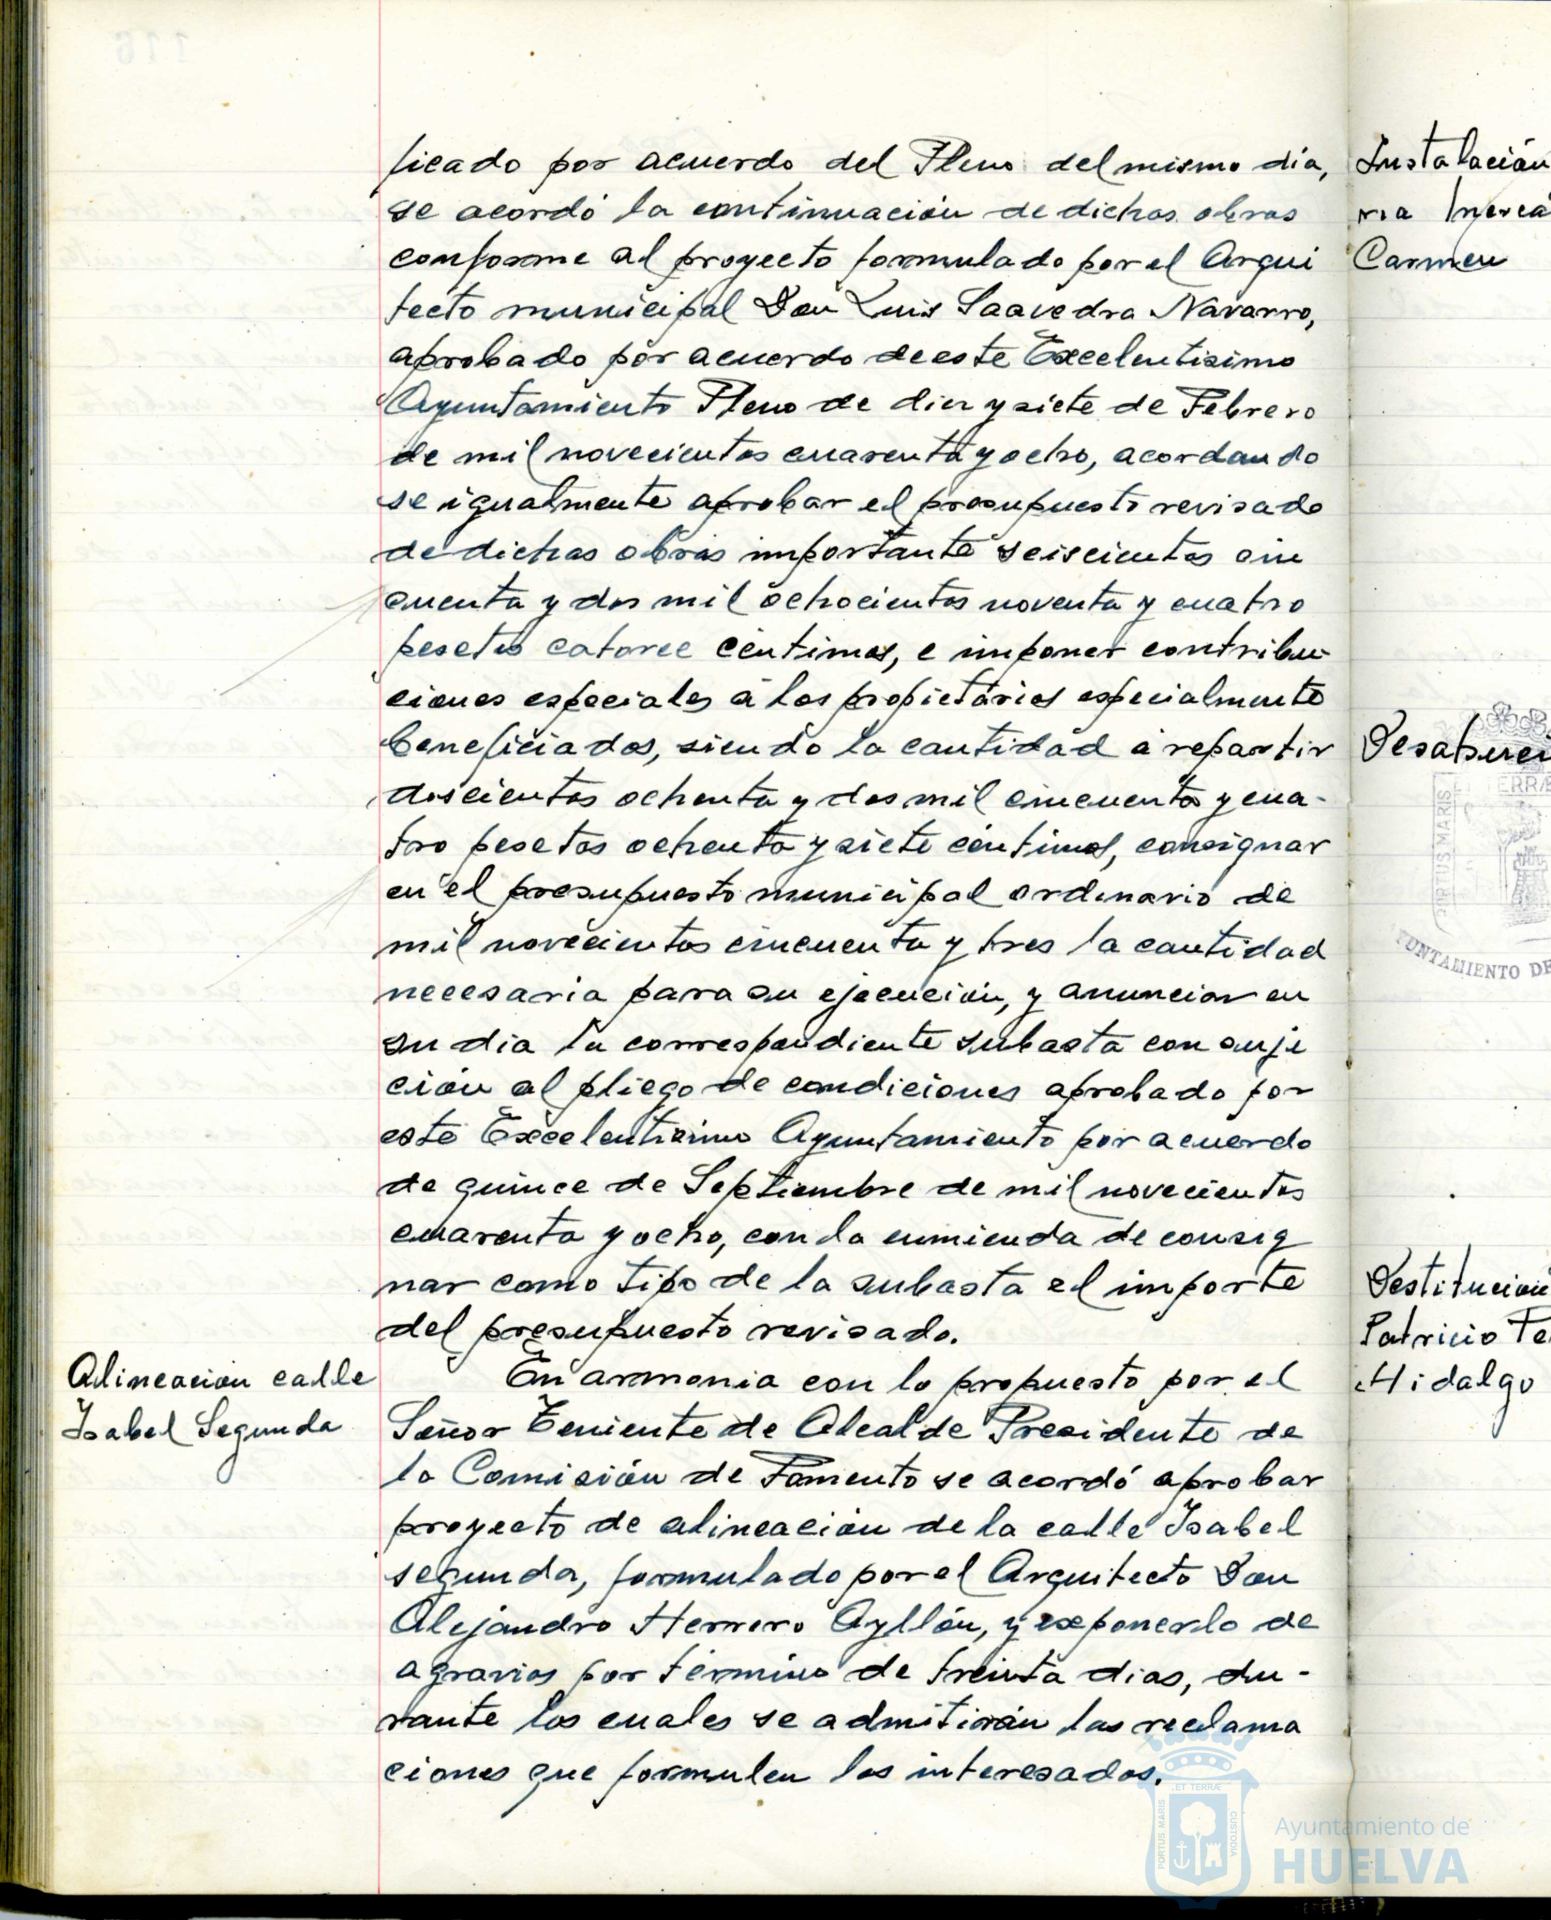 ficado por acuerdo del Pleno del mismo día,
se acordó la continuación de dichas obras
conforme al proyecto formulado por el Arqui
tecto municipal Don Luis Saavedra Navarro,
aprobado por acuerdo de este Excelentisimo
Ayuntamiento Pleno de diez y siete de Febrero
de mil novecientos cuarenta y ocho, acordando
se igualmente aprobar el presupuesto revisado
de dichas obras importante seiscientas cin
cuenta y dos mil ochocientas noventa y cuatro
pesetas catorce céntimos, e imponer contribu-
ciones especiales a los propietarios especialmente
beneficiados, siendo la cantidad a repartir
doscientas ochenta y dos mil cincuenta y cua-
tro pesetas ochenta y siete céntimos, consignar
en el presupuesto municipal ordinario de
mil novecientos cincuenta y tres la cantidad
necesaria para su ejecución, y anunciar en
su dia la correspondiente subasta con suje
ción al pliego de condiciones aprobado por
este Excelentisimo Ayuntamiento por acuerdo
de quince de Septiembre de mil novecientos
cuarenta y ocho, con la enmienda de consig
nar como tipo de la subasta el importe
del presupuesto revisado.
Alineación calle
Isabel Segunda
En armonia con lo propuesto por el
Señor Teniente de Alcalde Presidente de
la Comisión de Fomento se acordó aprobar
proyecto de alineación de la calle Isabel
segunda, formulado por el Arquitecto Don
Alejandro Herrero Ayllón, y exponerlo de
agravios por término de treinta dias, du-
rante los cuales se admitirán las reclama
ciones que formulen los interesados.
Instalación
ria
Carmen
TERRÆ
PORTUS MARIS
YUNTAMIENTO DE
Destitución
Patricio Fe
Hidalgo
ET TERRÆ
PORTUS MARIS
CUSTODIA
Ayuntamiento de
HUELVA